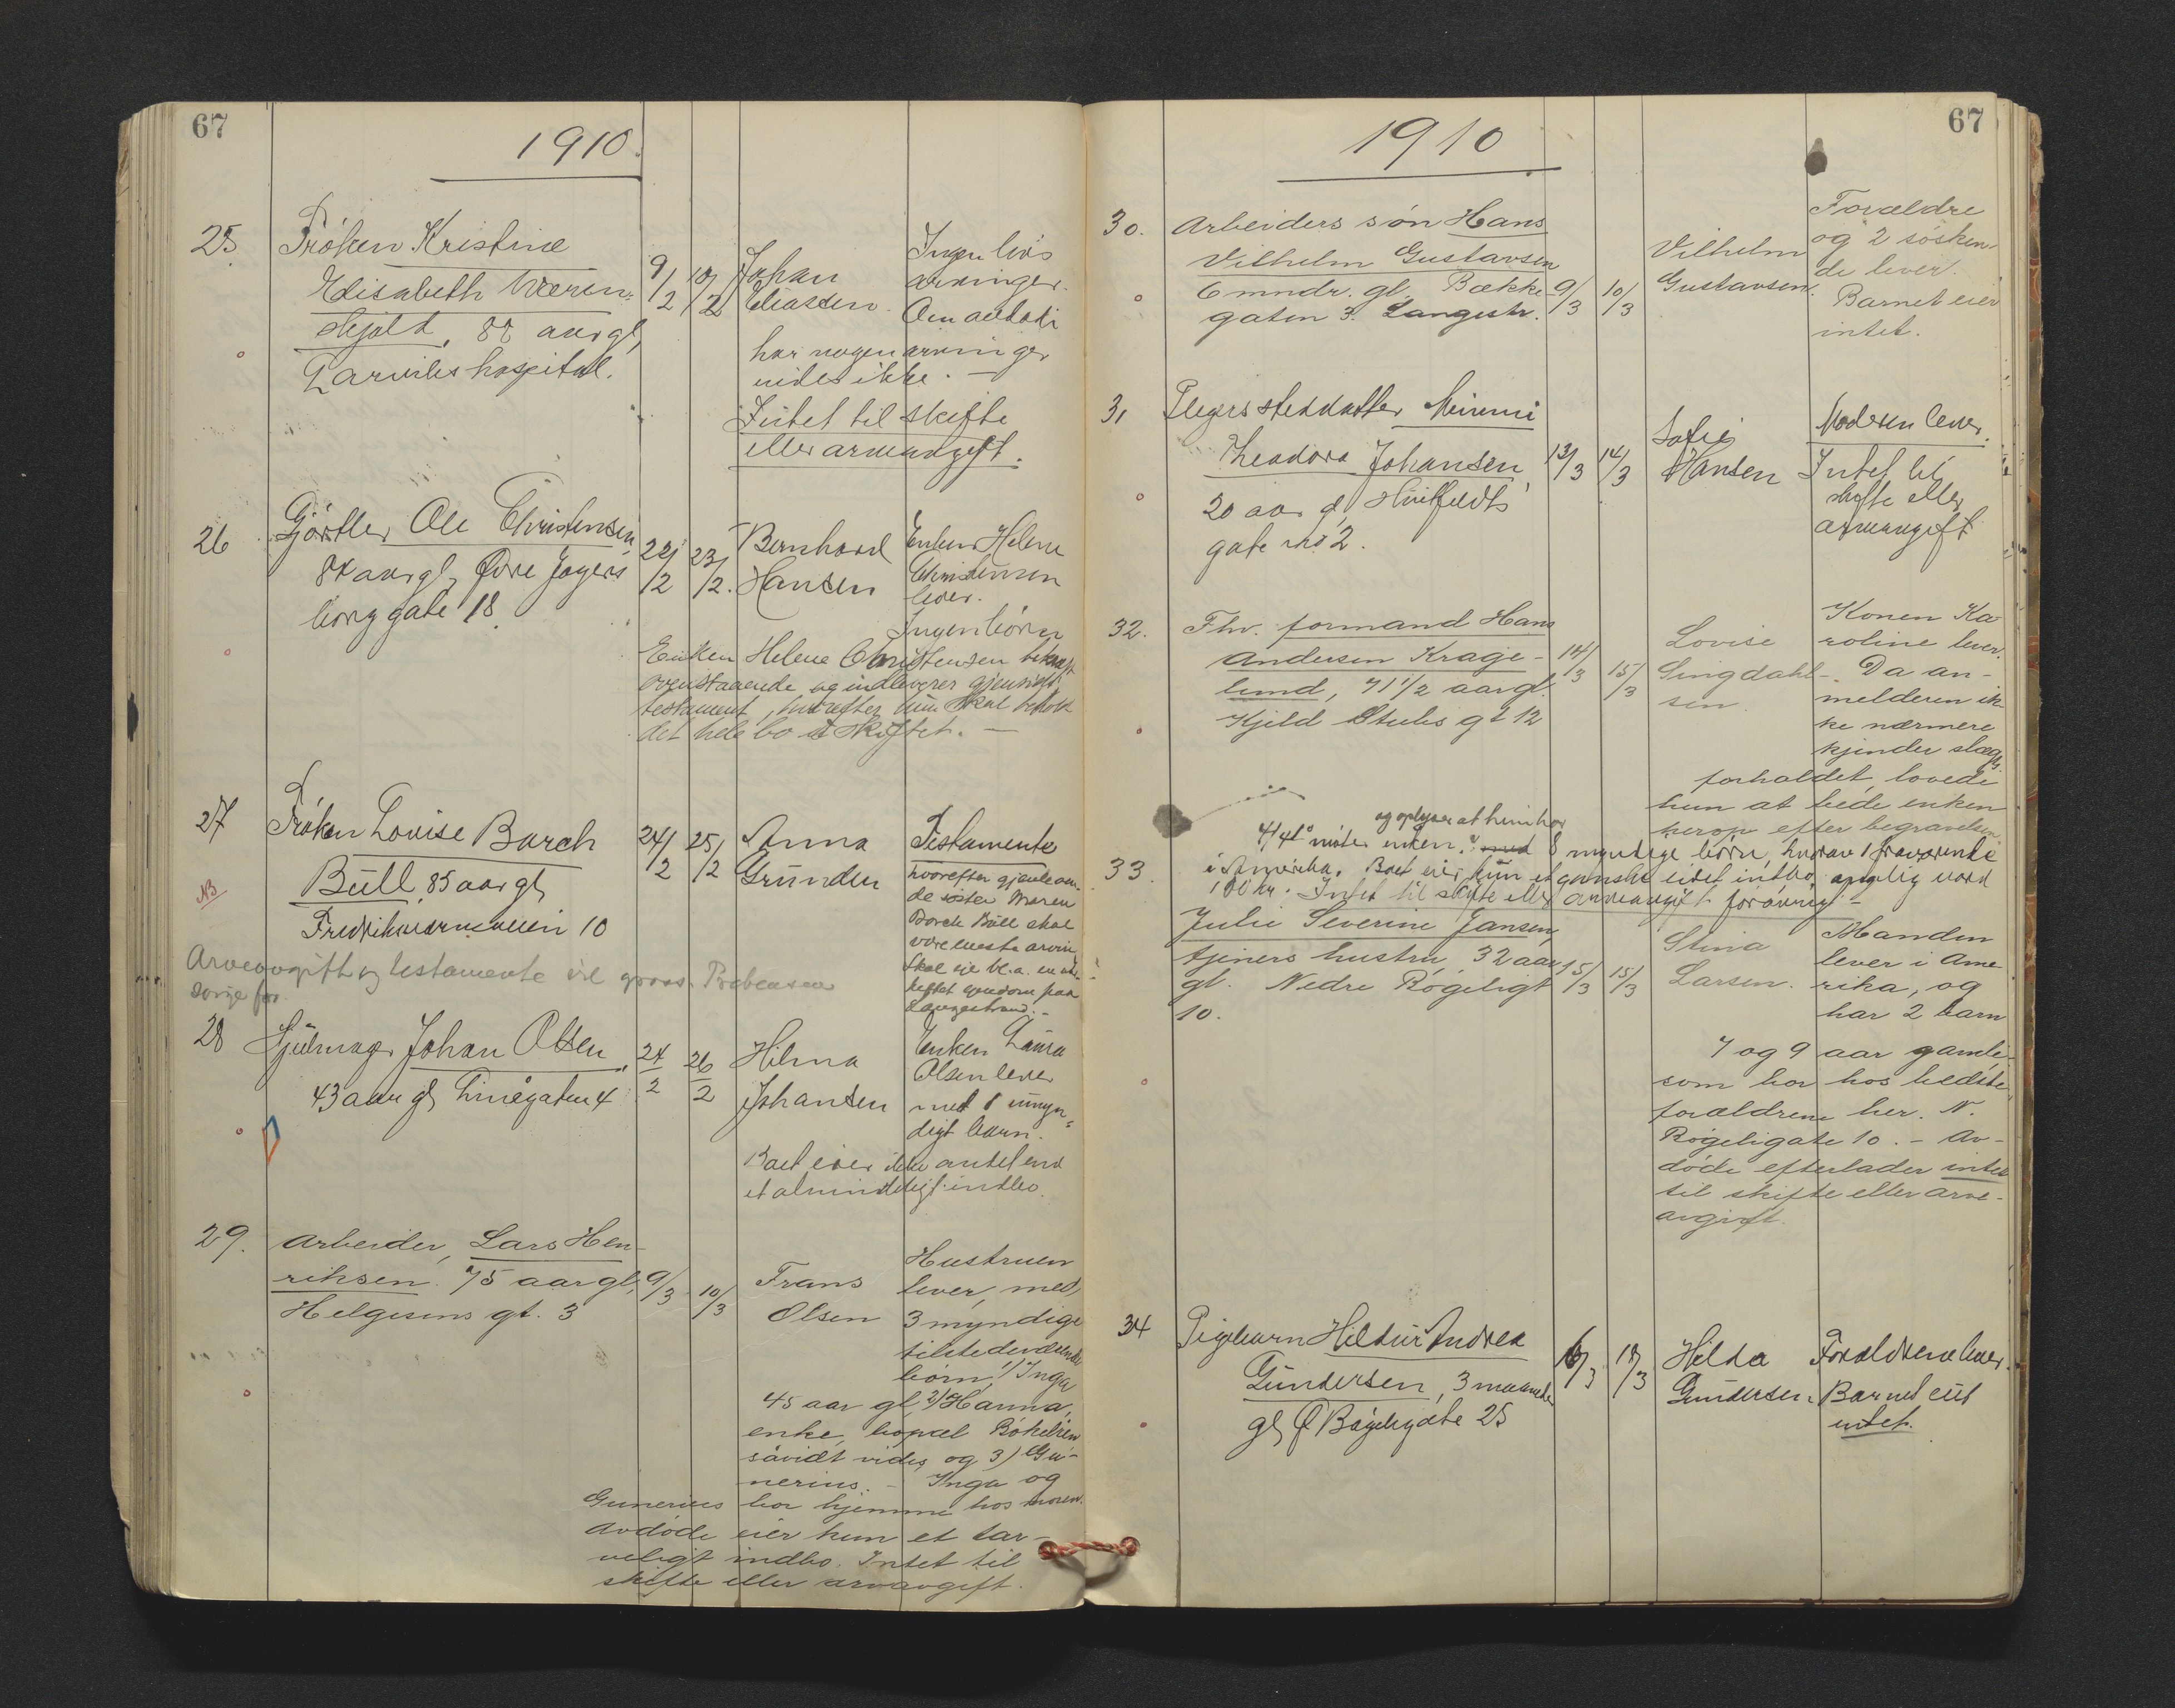 67
1910.
25 Frøken Kristine
Elisabeth Wæren-
skjold, 88 aar gl,
Larviks hospital.
9/2 10/2
Johan
Eliassen.
Ingen livs
arvinger.
Om avdøde
har nogen arvinger
vides ikke. —
Intet til skifte
eller arveavgift.
26 Gjørtler Ole Christensen,
aar gl, Øvre Jegers
borg gate 18.
22/2 23/2.
Bernhard
Hansen
Enken Helene
Christensen
lever.
Ingen børn
Enken Helene Christensen
ovenstaaende og indleverer gjensidigt
testament, hvorefter hun skal
det hele bo skiftet. —
27 Frøken Lovise Borch
Büll, 85 aar gl,
Fredriksværnsveien 10
NB
24/2 25/2
Anna
Grunden
Testamente
hvorefter gjenlevende
søster Maren
Borch Büll skal
være eneste arving
Skal eie bl.a. en
eiendom paa
Langestrand. –
Arveavgift og testamente vil
sørge for
28 Hjulmager Johan Olsen,
43 aar gl, Linegaten 4
24/2 26/2
Hilma
Johansen
Enken Laura
Olsen lever
med 1 umyn-
digt barn.
Boet eier ikke andet end
et almindeligt indbo.
29. Arbeider, Lars Hen-
riksen. 75 aar gl,
Helgesens gt. 3
9/3 10/3
Frans
Olsen
Hustruen
lever, med
3 myndige
tilstedeværende
børn, 1) Inga
45 aar gl, 2) Hanna,
enke, bopæl Bøkelien
såvidt vides, og 3) Gu-
nerius. – Inga og
Gunerius bor hjemme hos moren.
Avdøde eier kun et tar-
veligt indbo. Intet til
skifte eller arveavgift.
67
1910
30. Arbeiders søn Hans
Vilhelm Gustavsen
6 mndr. gl. Bække-
gaten 3. Langestr.
9/3 10/3
Vilhelm
Gustavsen.
Forældre
og 2 søsken-
de lever.
Barnet eier
intet.
31 Pleiers steddatter Mimmi
Theodora Johansen,
20 aar gl, Huitfeldts
gate no 2.
13/3 14/3
Sofie
Hansen
Moderen lever.
Intet til
skifte eller
arveavgift
32. Fhv. formand Hans
Andersen Krage-
lund, 71 1/2 aar gl.
Kjeld Stubs gt 12
14/3 15/3
Lovise
Singdahl-
sen.
Konen Ka
roline lever.
Da an-
melderen ik-
ke nærmere
kjender slægts
forholdet, lovede
hun at bede enken
herop efter begravelsen
og oplyser at hun har
møter enken. 8 myndige børn, hvorav 1 fraværende
i Amerika. Boet eier kun et ganske lidet indbo, værd
100 kr. Intet til skifte eller arveavgift forøvrig –
33.
Julie Severine Jansen,
tjeners hustru, 32 aar
gl. Nedre Bøgeligt
10.
15/3 15/3
Stina
Larsen.
Manden
lever i Ame
rika, og
har 2 barn
7 og 9 aar gamle,
som bor hos bedste-
forældrene her. N.
Bøgeligate 10. – Av-
døde efterlader intet
til skifte eller arve-
avgift.
34 Pigebarn Hildur Andrea
Gundersen, 3 maaneder
gl, Ø Bøgeligate 25
18/3
Hilda
Gundersen
Forældrene lever.
Barnet eier
intet.